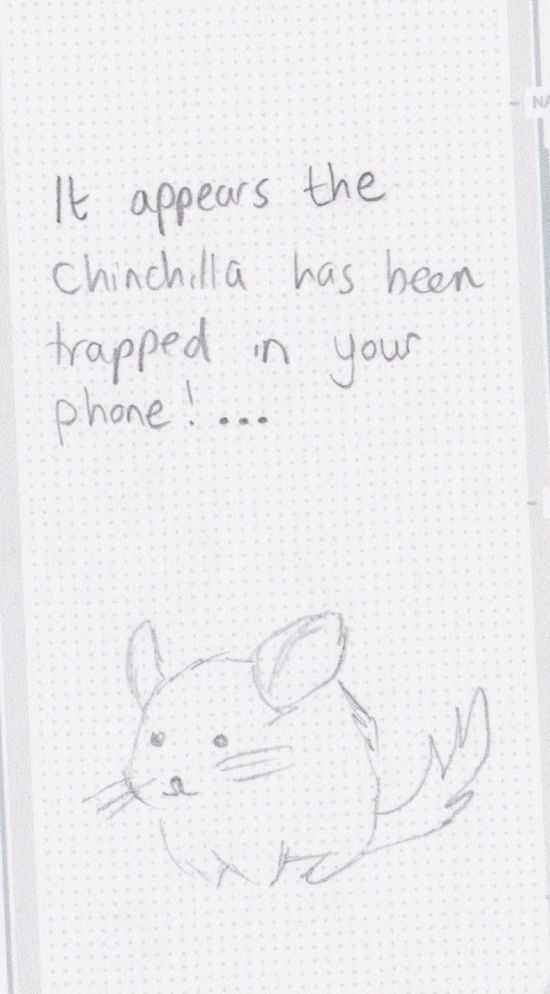 It appears the
Chinchilla has been
trapped in your
phone!...
NA